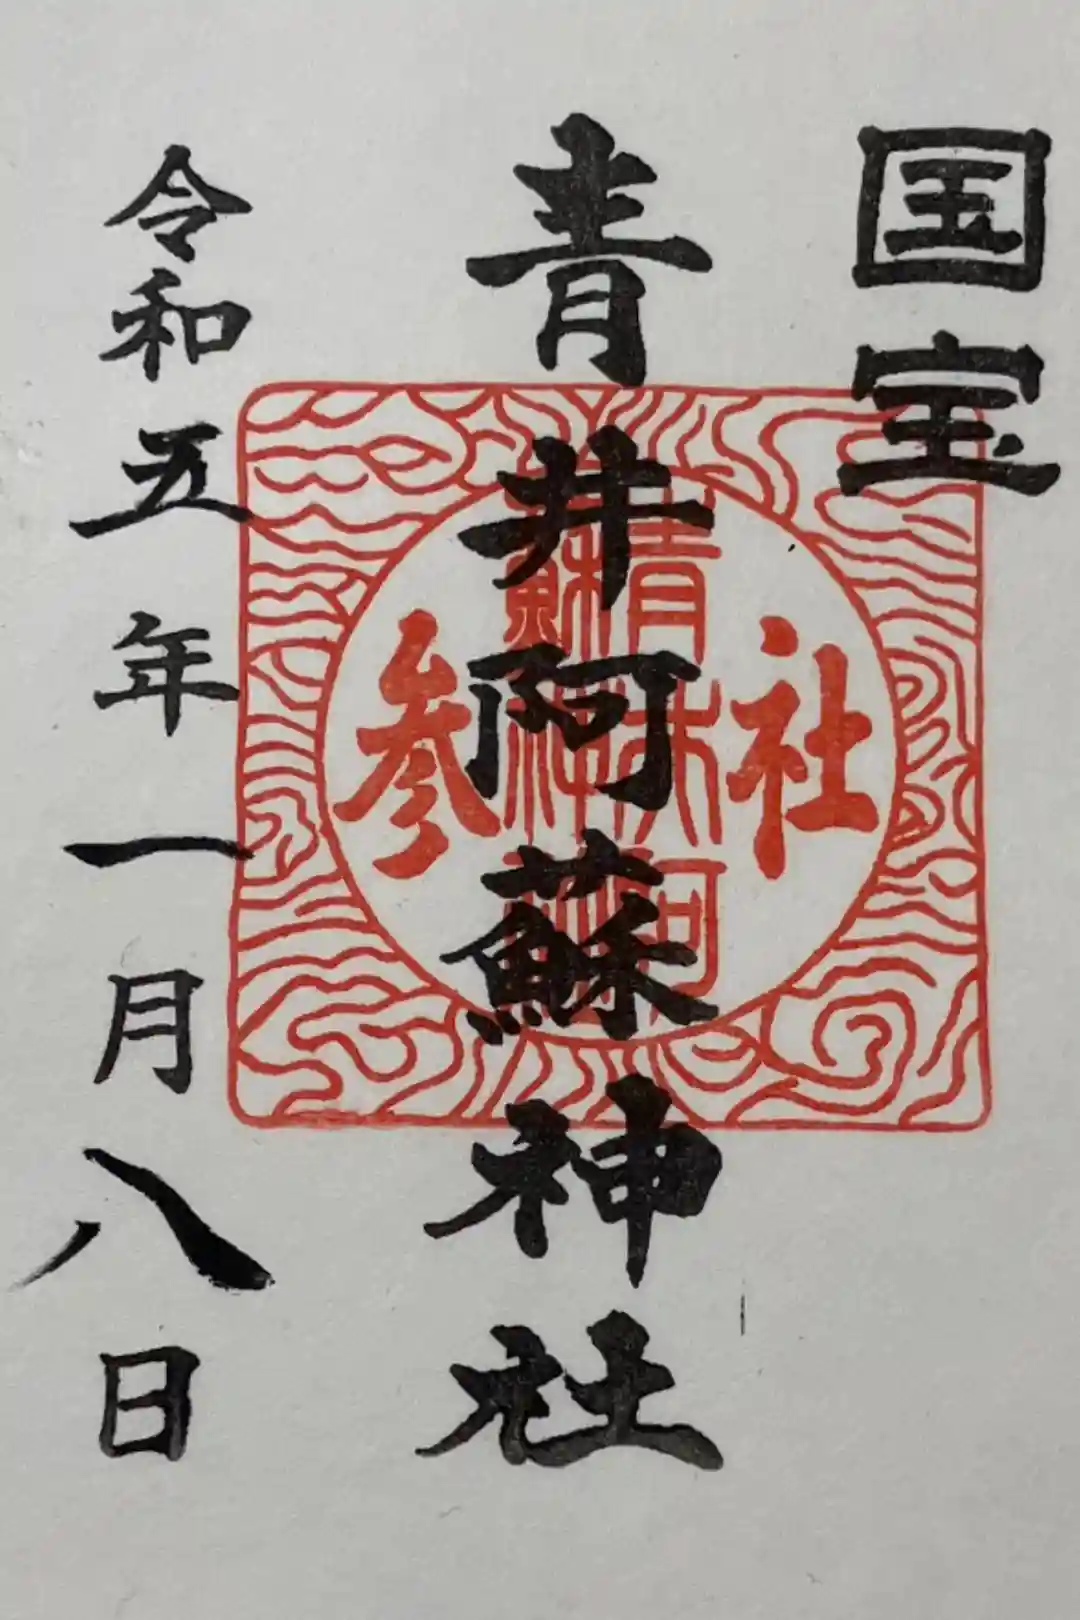 国宝
青井阿蘇神社
社参
青井阿蘇神社
令和五年一月八日